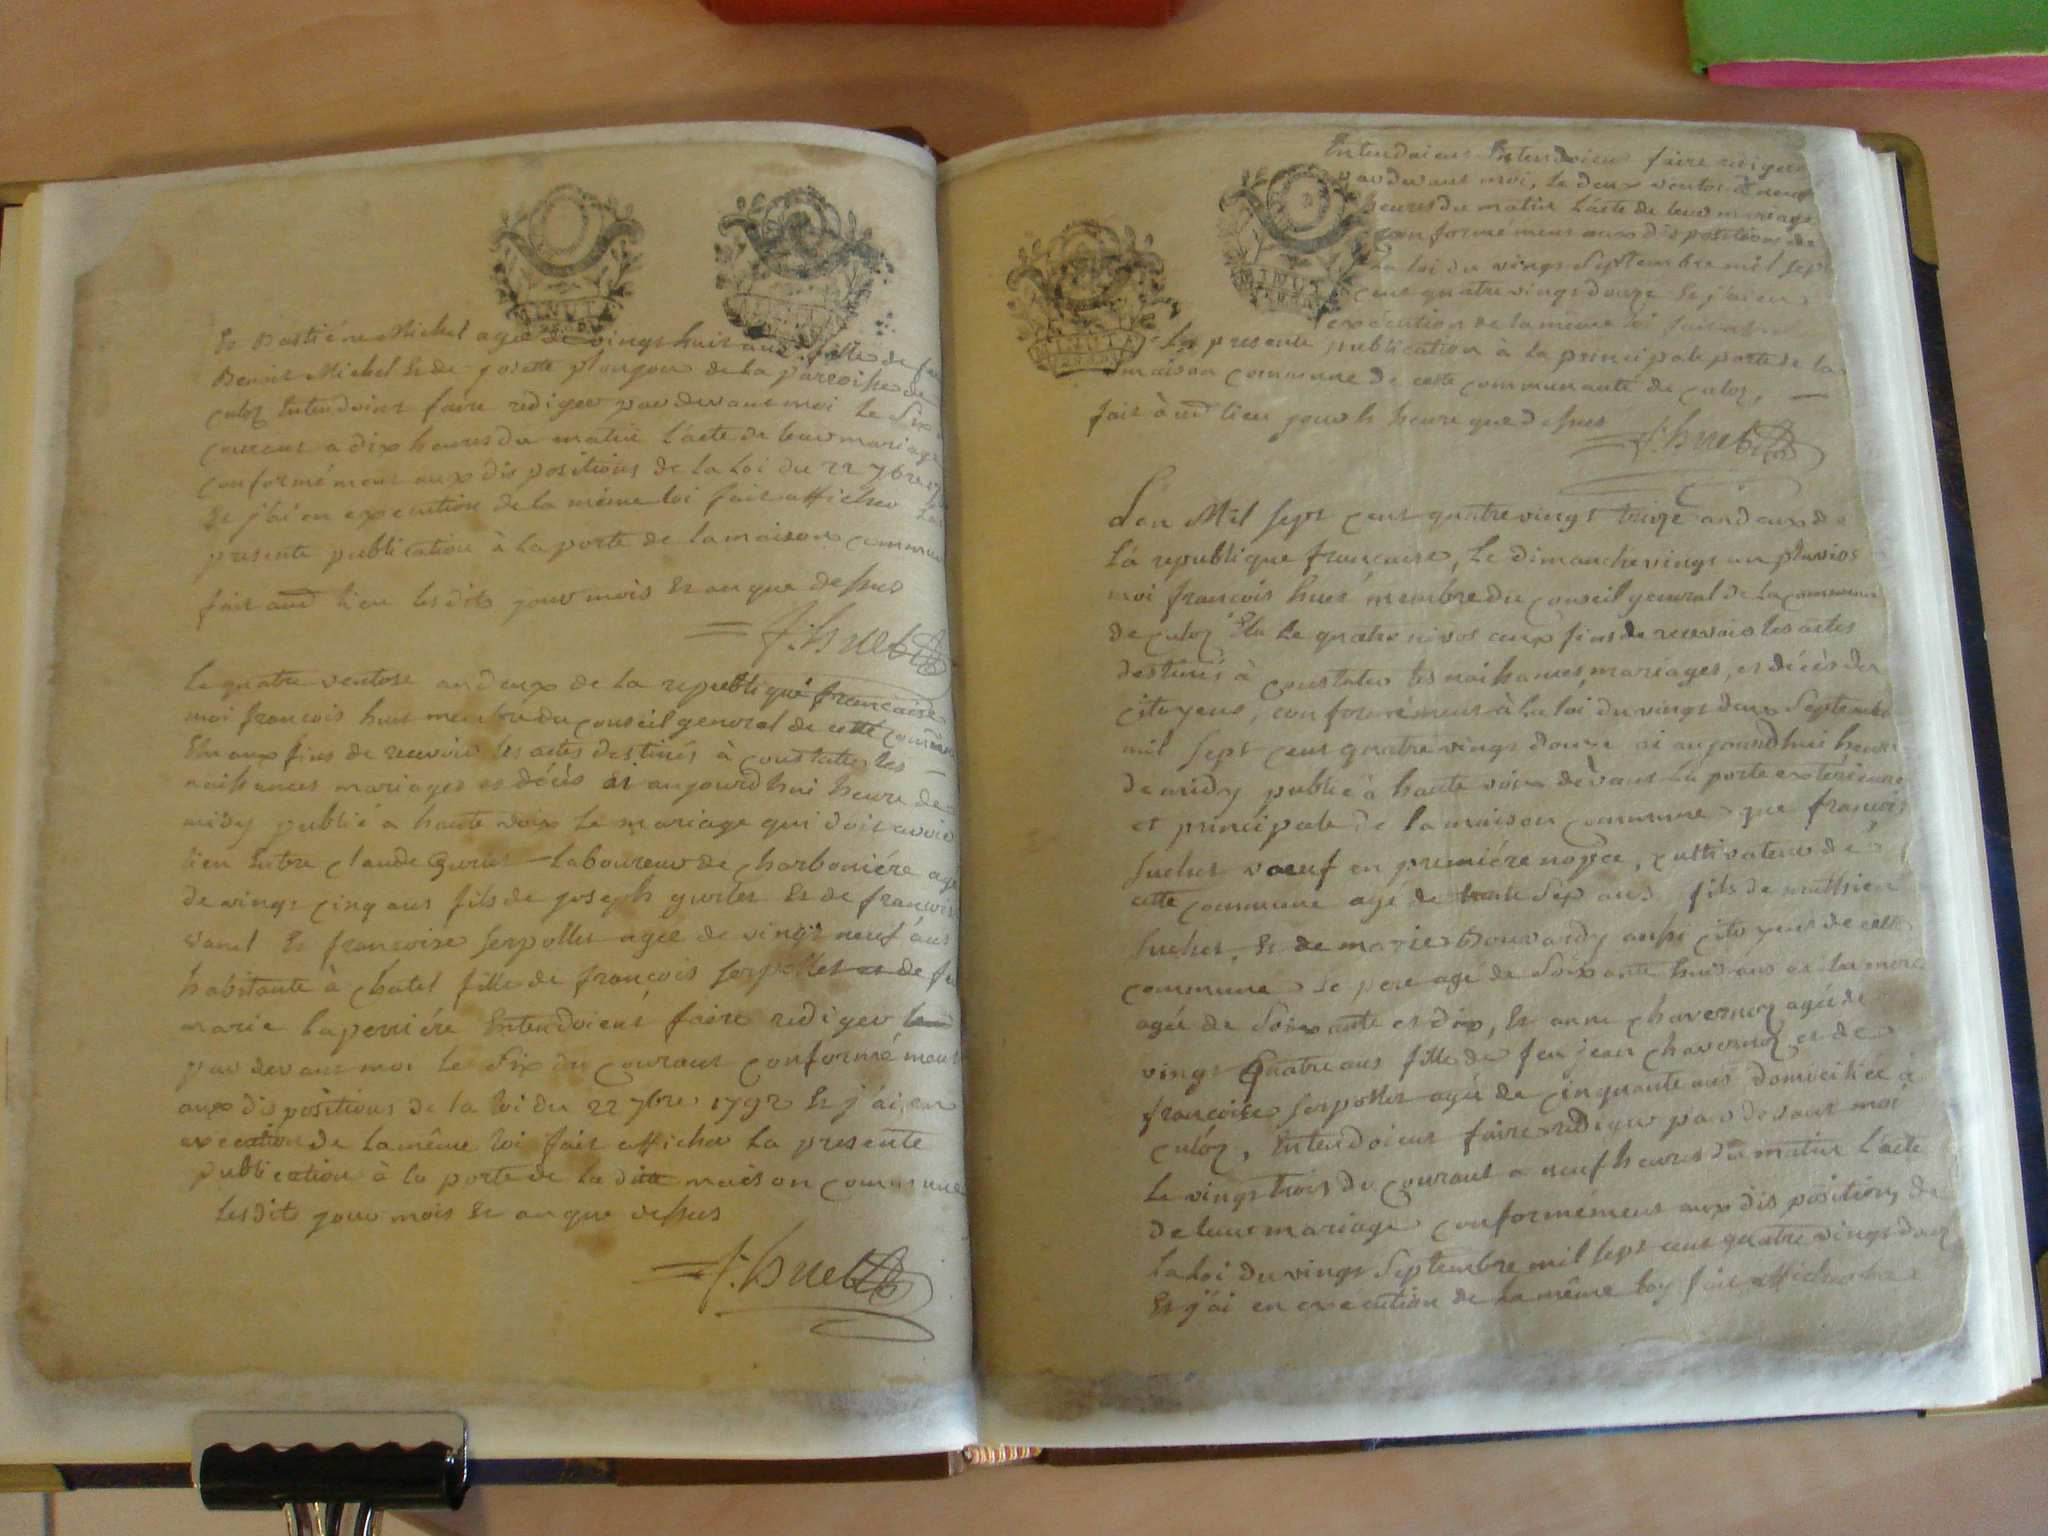 Et Bastiéne Michel agée de vingt huit ans fille de feu
Benoit Michel Et de josette plonjon de la parroisse de
culoz Entendoint faire rediger pardevant moi Le Six
courant a dix heures du matin L'acte de leur mariage
conformément aux dispositions de La Loi du 22 7bre
Et j'ai en execution de la même loi fait afficher La
presente publication à La porte de la maison commune
fait aud lieu lesdits jour mois Et an que dessus
f. huet
Le quatre ventose an deux de la republique francaise
moi francois huet membre du conseil general de cette commune
Elu aux fins de recevoir les actes destinés à constater les
naissances mariages et décés ai aujourd'hui heure de
midy publié a haute voix Le mariage qui doit avoir
lieu Entre claude gurtet Laboureur de charboniére agé
de vingt cinq ans fils de joseph gurtet Et de francoise
Et francoise serpollet agée de vingt neuf ans
habitante à chatel fille de francois serpollet et de feu
marie laperriére Entendoient faire rediger
pardevant moi le Six du courant conformément
aux dispositions de la loi du 22 7bre 1792 Et j'ai en
execution de la même loi fait afficher La presente
publication à la porte de la ditte maison commune
lesdits jour mois Et an que dessus
f. huet
Entendoient Entendoient faire rediger
pardevant moi, Le deux ventos à neuf
heures du matin L'acte de leur mariage
conformement aux dispositions de
La loi du vingt Septembre mil sept
cent quatre vingt douze Et j'ai en
exécution de la même loi fait
La presente publication à La principale porte de La
maison commune de cette communauté de culoz,
fait à ud lieu jour h heure que dessus
f. huet
L'an Mil sept cent quatre vingt treize an deux de
La republique francaise, Le dimanche vingt un pluvios
moi francois huet membre du conseil general de La commune
de culoz Elu Le quatre nivos aux fins de recevoir les actes
destinés à constater les naissances, mariages, et décès des
citoyens, conformément à La loi du vingt deux Septembre
mil sept cent quatre vingt douze ai aujourdhui heure
de midy publié à haute voix devant La porte extérieure
et principale de la maison commune que francois
suchet voeuf en premiére nopce, cultivateur de
cette commune agé de trente Sept ans fils de
suchet, Et de marie Bouvardy aussi citoyens de cette
commune Le pere agé de Soixante huit ans et la mere
agée de Soixante et dix, Et anne chavernoz agée de
vingt Quatre ans fille de feu jean chavernoz et de
francoise serpollet agée de cinquante ans domiciliée à
culoz, Entendoient faire rediger pardevant moi
Le vingt trois du courant a neuf heures du matin L'acte
de leur mariage conformément aux dispositions de
La Loi du vingt Septembre mil sept cent quatre vingt douze
Et j'ai en execution de La même loy fait afficher La